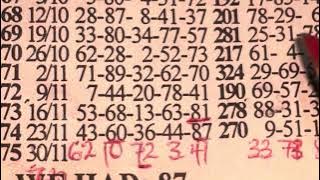 68 12/10 28-87- 8-41-37 201 78-29-
69 19/10 33-80-34-77-57 281 25-31-
70 26/10 62-28- 2-52-73 217 61- 4-
71 2/11 71-89-32-62-70 324 29-69-
72 9/11 7-44-20-78-41 190 69-57-
73 16/11 53-68-13-63-81 278 88-31-3
74 23/11 43-60-36-44-87 270 9-51-1
75 30/11 62 10 72 34 33 78
HAD 87